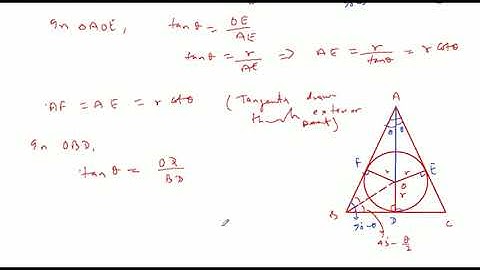 In ΔAOE, tanθ = OE/AE
tanθ = r/AE ⇒ AE = r/tanθ = r cotθ
AF = AE = r cotθ (Tangents drawn
through exterior
point)
In OBD,
tanθ = OD/BD
A
θ θ
F E
r r
O
r
B D C
90-θ
45-θ/2